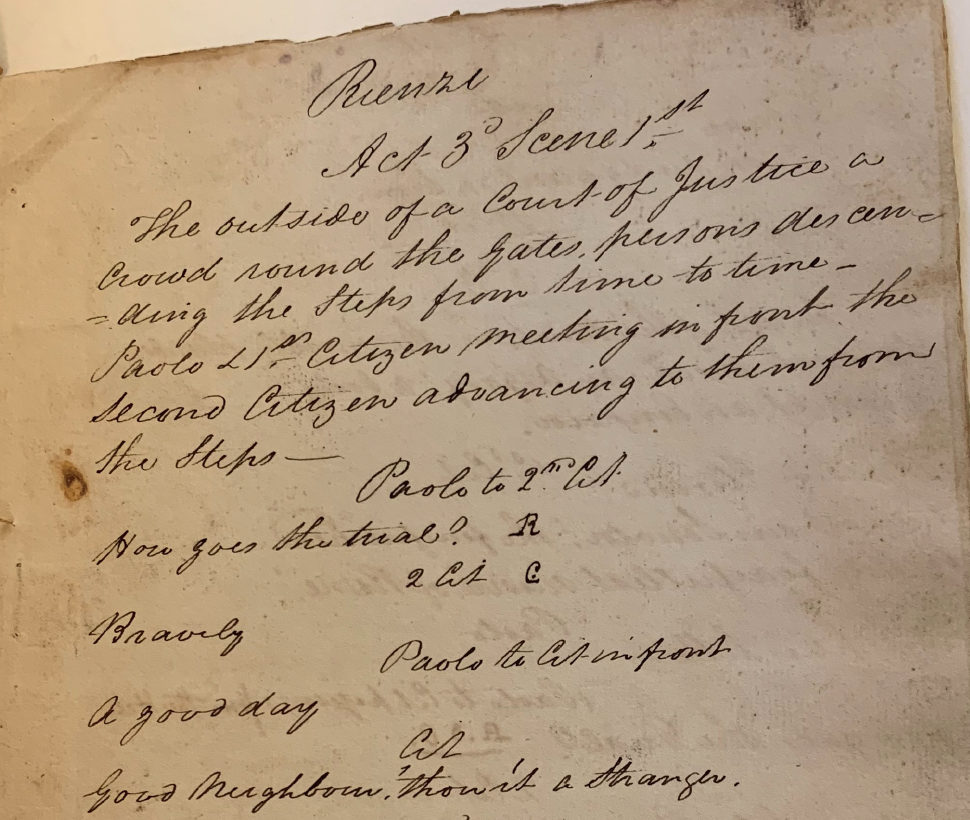 Rienzi
Act 3d Scene 1st
The outside of a Court of Justice a
Crowd round the Gates, persons descen=
=ding the Steps from time to time_
Paolo & 1st Citizen meeting in front the
Second Citizen advancing to them from
the Steps—
Paolo to 2nd Cit
How goes the trial? R
2 Cit C
Bravely
Paolo to Cit in front
A good day
Cit
Good Neighbour, thou'rt a Stranger.